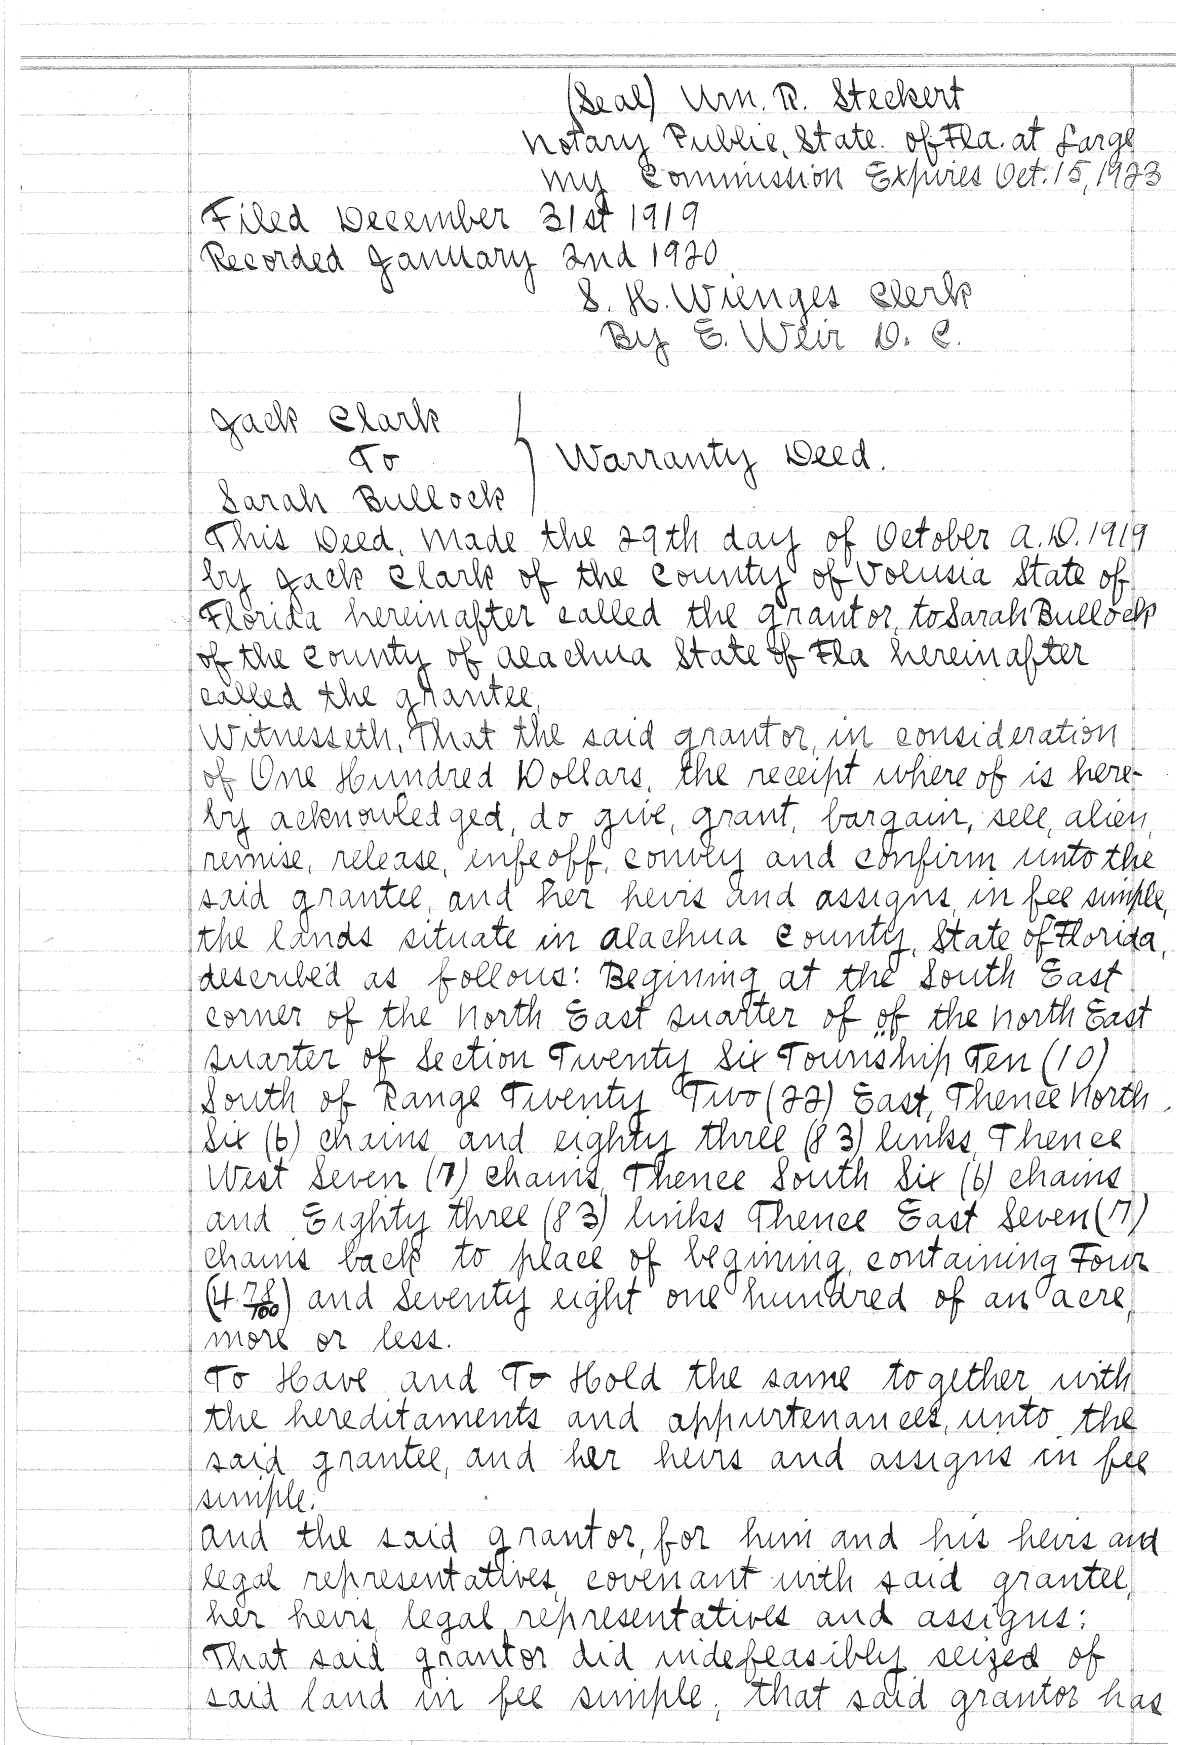 (Seal) Wm. R. Steckert
Notary Public, State. of Fla. at Large
My Commission Expires Oct. 15, 1923
Filed December 31st 1919
Recorded January 2nd 1920
S. H. Wienges Clerk
By E. Weir D. C.
Jack Clark
To
Sarah Bullock
Warranty Deed.
This Deed, Made the 29th day of October A.D. 1919
by Jack Clark of the County of Volusia State of
Florida hereinafter called the grantor, to Sarah Bullock
of the County of Alachua State of Fla hereinafter
called the grantee,
Witnesseth, That the said grantor, in consideration
of One Hundred Dollars, the receipt where of is here-
by acknowledged, do give, grant, bargain, sell, alien,
remise, release, enfeoff, convey and confirm unto the
said grantee, and her heirs and assigns, in fee simple,
the lands situate in Alachua County, State of Florida,
described as follows: Begining at the South East
corner of the North East quarter of of the North East
quarter of Section Twenty Six Township Ten (10)
South of Range Twenty Two (22) East, Thence North
Six (6) chains and eighty three (83) links, Thence
West Seven (7) Chains, Thence South Six (6) chains
and Eighty three (83) links Thence East Seven (7)
chains back to place of begining, containing Four
(4 78/100) and Seventy eight one hundred of an acre,
more or less.
To Have and To Hold the same together with
the hereditaments and appurtenances, unto the
said grantee, and her heirs and assigns in fee
simple.
And the said grantor, for him and his heirs and
legal representatives, covenant with said grantee,
her heirs, legal representatives and assigns:
That said grantor did indefeasibly seized of
said land in fee simple; that said grantor has